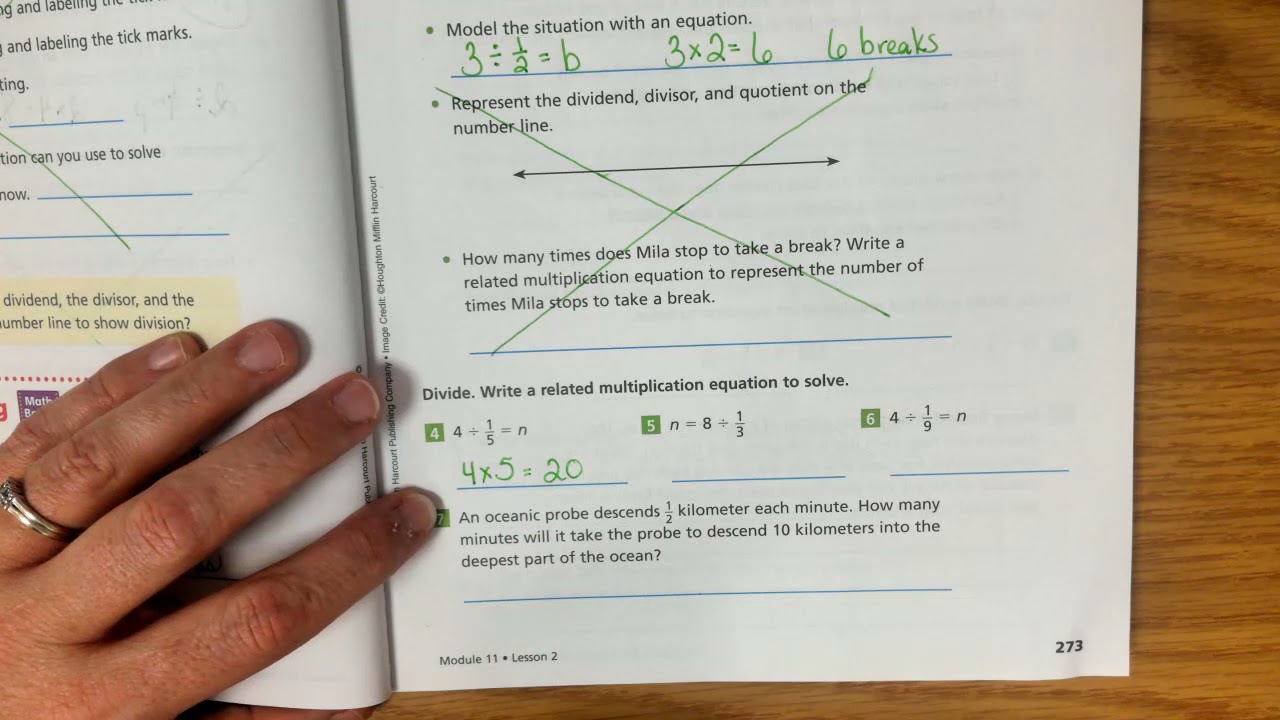 and labeling the tick marks.
ting.
tion can you use to solve
now.
dividend, the divisor, and the
umber line to show division?
Math
• Model the situation with an equation.
3 ÷ 1/2 = b 3 x 2 = 6 6 breaks
• Represent the dividend, divisor, and quotient on the
number line.
• How many times does Mila stop to take a break? Write a
related multiplication equation to represent the number of
times Mila stops to take a break.
Divide. Write a related multiplication equation to solve.
4 4 ÷ 1/5 = n 5 n = 8 ÷ 1/3 6 4 ÷ 1/9 = n
4 x 5 = 20
7 An oceanic probe descends 1/2 kilometer each minute. How many
minutes will it take the probe to descend 10 kilometers into the
deepest part of the ocean?
Module 11 • Lesson 2
273
Harcourt Publishing Company • Image Credit: ©Houghton Mifflin Harcourt